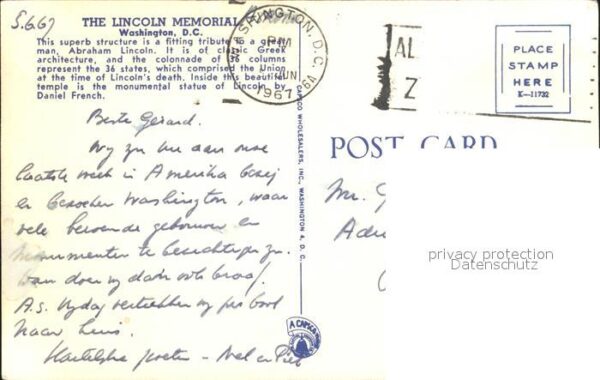 5.6.67
THE LINCOLN MEMORIAL
Washington, D.C.
This superb structure is a fitting tribute to a great
man, Abraham Lincoln. It is of classic Greek
architecture, and the colonnade of 36 columns
represent the 36 states, which comprised the Union
at the time of Lincoln's death. Inside this beautiful
temple is the monumental statue of Lincoln by
Daniel French.
WASHINGTON, D.C.
PM
JUN
1967
AL
Z
PLACE
STAMP
HERE
K-11732
Beste Gerard.
Wij zijn nu aan onze
laatste week in Amerika bezig
en bezoeken Washington, waar
vele beroemde gebouwen en
monumenten te bezichtigen zijn.
Dan doen wij dan ook braaf.
A.s. vrijdag vertrekken wij per boot
naar huis.
Hartelijke groeten - Nel en Piet
CAPSCO WHOLESALERS, INC., WASHINGTON 4, D. C.
A CAPSCO
POST CARD
Mr. G
privacy protection
Datenschutz